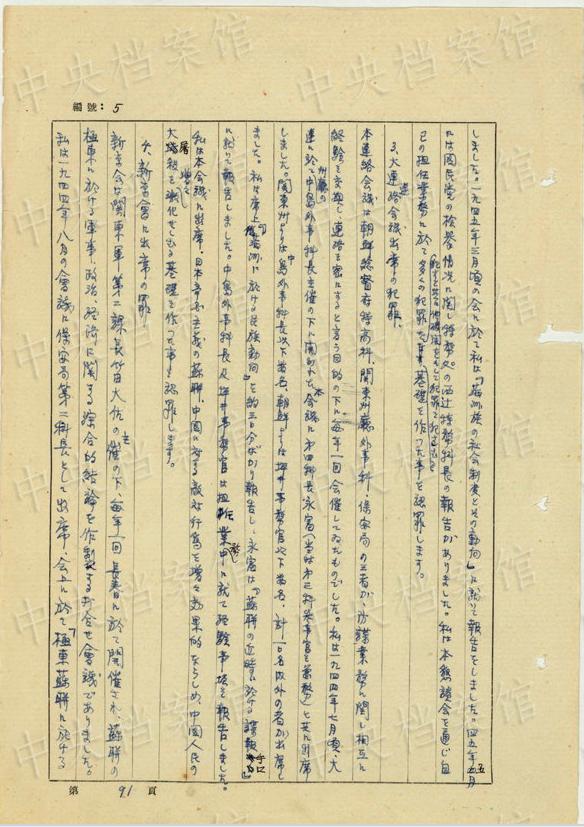 中央档案馆
編號：5
しました。一九四五年三月頃の会に於て私は「満洲族の社会制度とその動向」に就て報告をしました。四五年五月
には国民党の検挙情況に関し特務処の西辻特務科長の報告がありました。私は本懇談会を通じ自
己の担任業務に於て多くの犯罪た基礎を作った事を認罪します。
3、大連連絡会議出席の犯罪、
本連絡会議は朝鮮総督府特高科、関東州廳外事科、保安局の三者が、防諜業務に関し相互に
経験を交換し連絡を密にすると言う目的の下に毎年一回会催してゐたものでした。私は一九四四年七月頃、大
連に於て州廳の中島外事科長主催の下に開かれた本会議に第四科長永富（当時第三科理事官を兼務）と共に出席
しました。関東州よりは中島外事科長以下若名、朝鮮よりは坪井事務官以下若名、計一〇名以外の者が出席し
ました。私は席上「満洲に於ける民族動向」を約三〇分ばかり報告し、永富は「蘇聯の近時に於ける諜報
に就て報告しました。中島外事科長及坪井事務官は担任業務中に就て経験事項を報告しました。
私は本会議に出席し日本帝国主義の蘇聯、中国に対する敵対行為を増々効果的ならしめ、中国人民の
大屠殺を強化せしむる基礎を作った事を認罪します。
4、新京會に出席の罪
新京会は関東軍第二課長竹田大佐の主催の下、毎年一回長春に於て開催され、蘇聯の
極東に於ける軍事、政治、経済に関する綜合的結論を作製する打合せ會議でありました。
私は一九四四年八月の會議に保安局第二科長として出席、会上に於て「極東蘇聯に於ける
第 91 頁